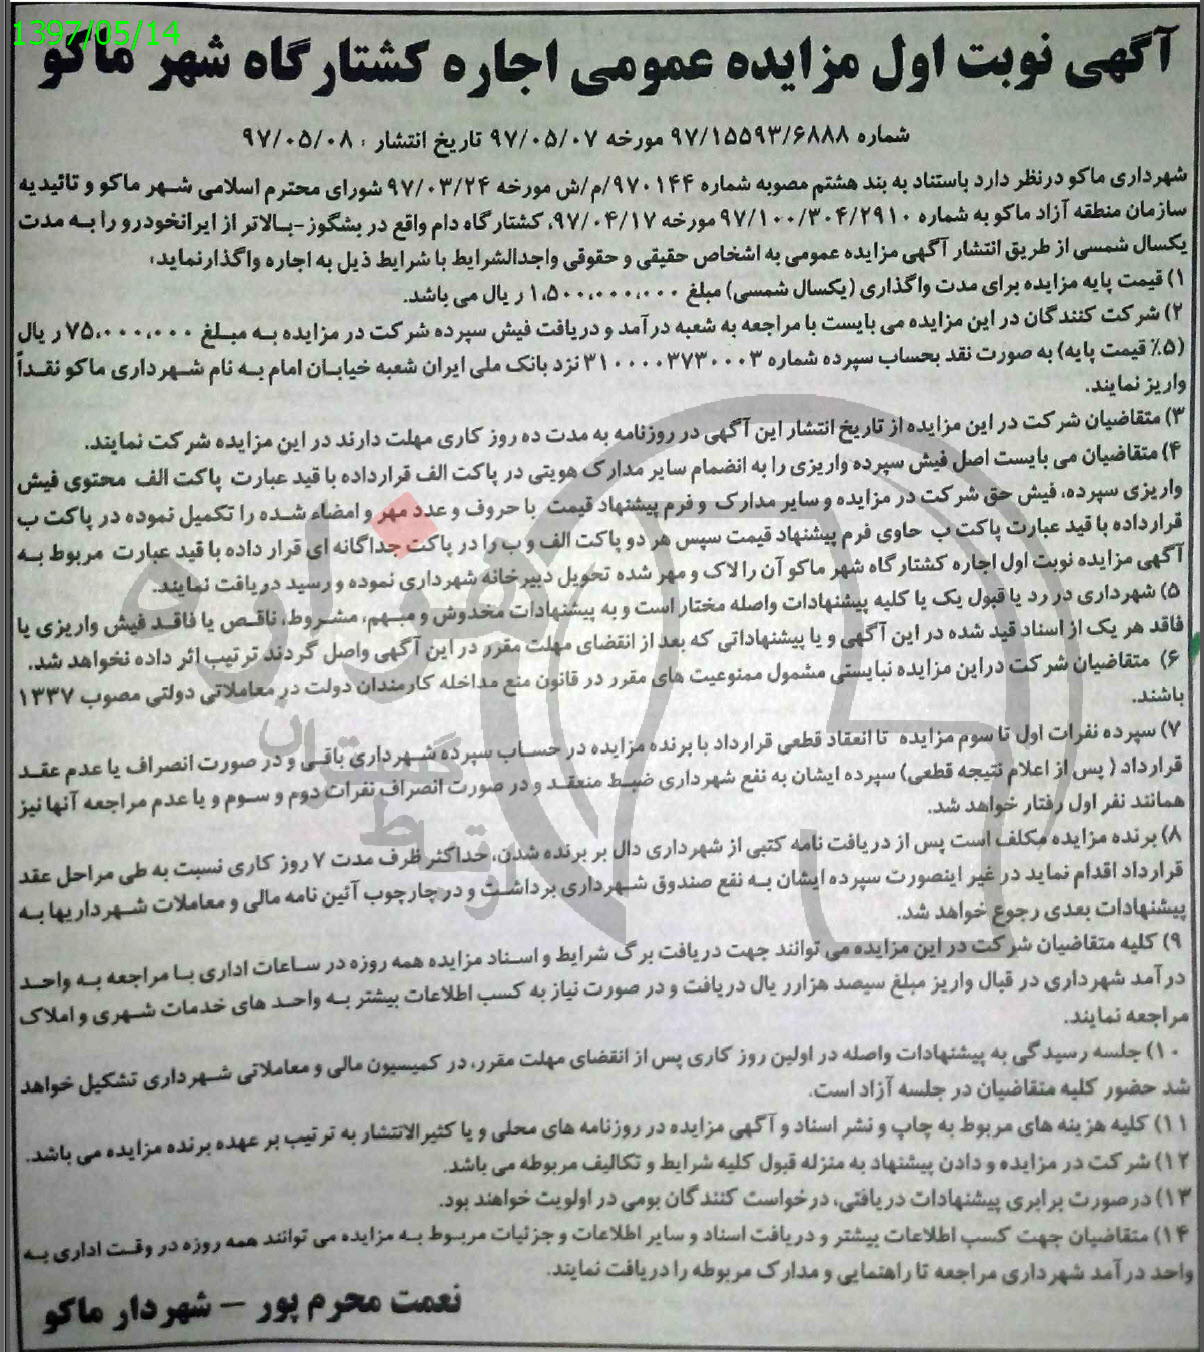 1397/05/14
آگهی نوبت اول مزایده عمومی اجاره کشتارگاه شهر ماکو
شماره ۹۷/۱۵۵۹۳/۶۸۸۸ مورخه ۹۷/۰۵/۰۷ تاریخ انتشار : ۹۷/۰۵/۰۸
شهرداری ماکو درنظر دارد باستناد به بند هشتم مصوبه شماره ۹۷۰۱۴۴/م/ش مورخه ۹۷/۰۳/۲۴ شورای محترم اسلامی شهر ماکو و تائیدیه
سازمان منطقه آزاد ماکو به شماره ۹۷/۱۰۰/۳۰۴/۲۹۱۰ مورخه ۹۷/۰۴/۱۷، کشتارگاه دام واقع در بشگوز-بالاتر از ایرانخودرو را به مدت
یکسال شمسی از طریق انتشار آگهی مزایده عمومی به اشخاص حقیقی و حقوقی واجدالشرایط با شرایط ذیل به اجاره واگذارنماید:
۱) قیمت پایه مزایده برای مدت واگذاری (یکسال شمسی) مبلغ ۱،۵۰۰،۰۰۰،۰۰۰ ریال می باشد.
۲) شرکت کنندگان در این مزایده می بایست با مراجعه به شعبه درآمد و دریافت فیش سپرده شرکت در مزایده به مبلغ ۷۵،۰۰۰،۰۰۰ ریال
(۵٪ قیمت پایه) به صورت نقد بحساب سپرده شماره ۳۱۰۰۰۰۳۷۳۰۰۰۳ نزد بانک ملی ایران شعبه خیابان امام به نام شهرداری ماکو نقداً
واریز نمایند.
۳) متقاضیان شرکت در این مزایده از تاریخ انتشار این آگهی در روزنامه به مدت ده روز کاری مهلت دارند در این مزایده شرکت نمایند.
۴) متقاضیان می بایست اصل فیش سپرده واریزی را به انضمام سایر مدارک هویتی در پاکت الف قرارداده با قید عبارت پاکت الف محتوی فیش
واریزی سپرده، فیش حق شرکت در مزایده و سایر مدارک و فرم پیشنهاد قیمت با حروف و عدد مهر و امضاء شده را تکمیل نموده در پاکت ب
قرارداده با قید عبارت پاکت ب حاوی فرم پیشنهاد قیمت سپس هر دو پاکت الف و ب را در پاکت جداگانه ای قرار داده با قید عبارت مربوط به
آگهی مزایده نوبت اول اجاره کشتارگاه شهر ماکو آن را لاک و مهر شده تحویل دبیرخانه شهرداری نموده و رسید دریافت نمایند.
۵) شهرداری در رد یا قبول یک یا کلیه پیشنهادات واصله مختار است و به پیشنهادات مخدوش و مبهم، مشروط، ناقص یا فاقد فیش واریزی یا
فاقد هر یک از اسناد قید شده در این آگهی و یا پیشنهاداتی که بعد از انقضای مهلت مقرر در این آگهی واصل گردند ترتیب اثر داده نخواهد شد.
۶) متقاضیان شرکت دراین مزایده نبایستی مشمول ممنوعیت های مقرر در قانون منع مداخله کارمندان دولت در معاملاتی دولتی مصوب ۱۳۳۷
باشند.
۷) سپرده نفرات اول تا سوم مزایده تا انعقاد قطعی قرارداد با برنده مزایده در حساب سپرده شهرداری باقی و در صورت انصراف یا عدم عقد
قرارداد ( پس از اعلام نتیجه قطعی) سپرده ایشان به نفع شهرداری ضبط منعقد و در صورت انصراف نفرات دوم و سوم و یا عدم مراجعه آنها نیز
همانند نفر اول رفتار خواهد شد.
۸) برنده مزایده مکلف است پس از دریافت نامه کتبی از شهرداری دال بر برنده شدن، حداکثر ظرف مدت ۷ روز کاری نسبت به طی مراحل عقد
قرارداد اقدام نماید در غیر اینصورت سپرده ایشان به نفع صندوق شهرداری برداشت و در چارچوب آئین نامه مالی و معاملات شهرداریها به
پیشنهادات بعدی رجوع خواهد شد.
۹) کلیه متقاضیان شرکت در این مزایده می توانند جهت دریافت برگ شرایط و اسناد مزایده همه روزه در ساعات اداری با مراجعه به واحد
درآمد شهرداری در قبال واریز مبلغ سیصد هزارر یال دریافت و در صورت نیاز به کسب اطلاعات بیشتر به واحد های خدمات شهری و املاک
مراجعه نمایند.
۱۰) جلسه رسیدگی به پیشنهادات واصله در اولین روز کاری پس از انقضای مهلت مقرر، در کمیسیون مالی و معاملاتی شهرداری تشکیل خواهد
شد حضور کلیه متقاضیان در جلسه آزاد است.
۱۱) کلیه هزینه های مربوط به چاپ و نشر اسناد و آگهی مزایده در روزنامه های محلی و یا کثیرالانتشار به ترتیب بر عهده برنده مزایده می باشد.
۱۲) شرکت در مزایده و دادن پیشنهاد به منزله قبول کلیه شرایط و تکالیف مربوطه می باشد.
۱۳) درصورت برابری پیشنهادات دریافتی، درخواست کنندگان بومی در اولویت خواهند بود.
۱۴) متقاضیان جهت کسب اطلاعات بیشتر و دریافت اسناد و سایر اطلاعات و جزئیات مربوط به مزایده می توانند همه روزه در وقت اداری به
واحد درآمد شهرداری مراجعه تا راهنمایی و مدارک مربوطه را دریافت نمایند.
نعمت محرم پور – شهردار ماکو